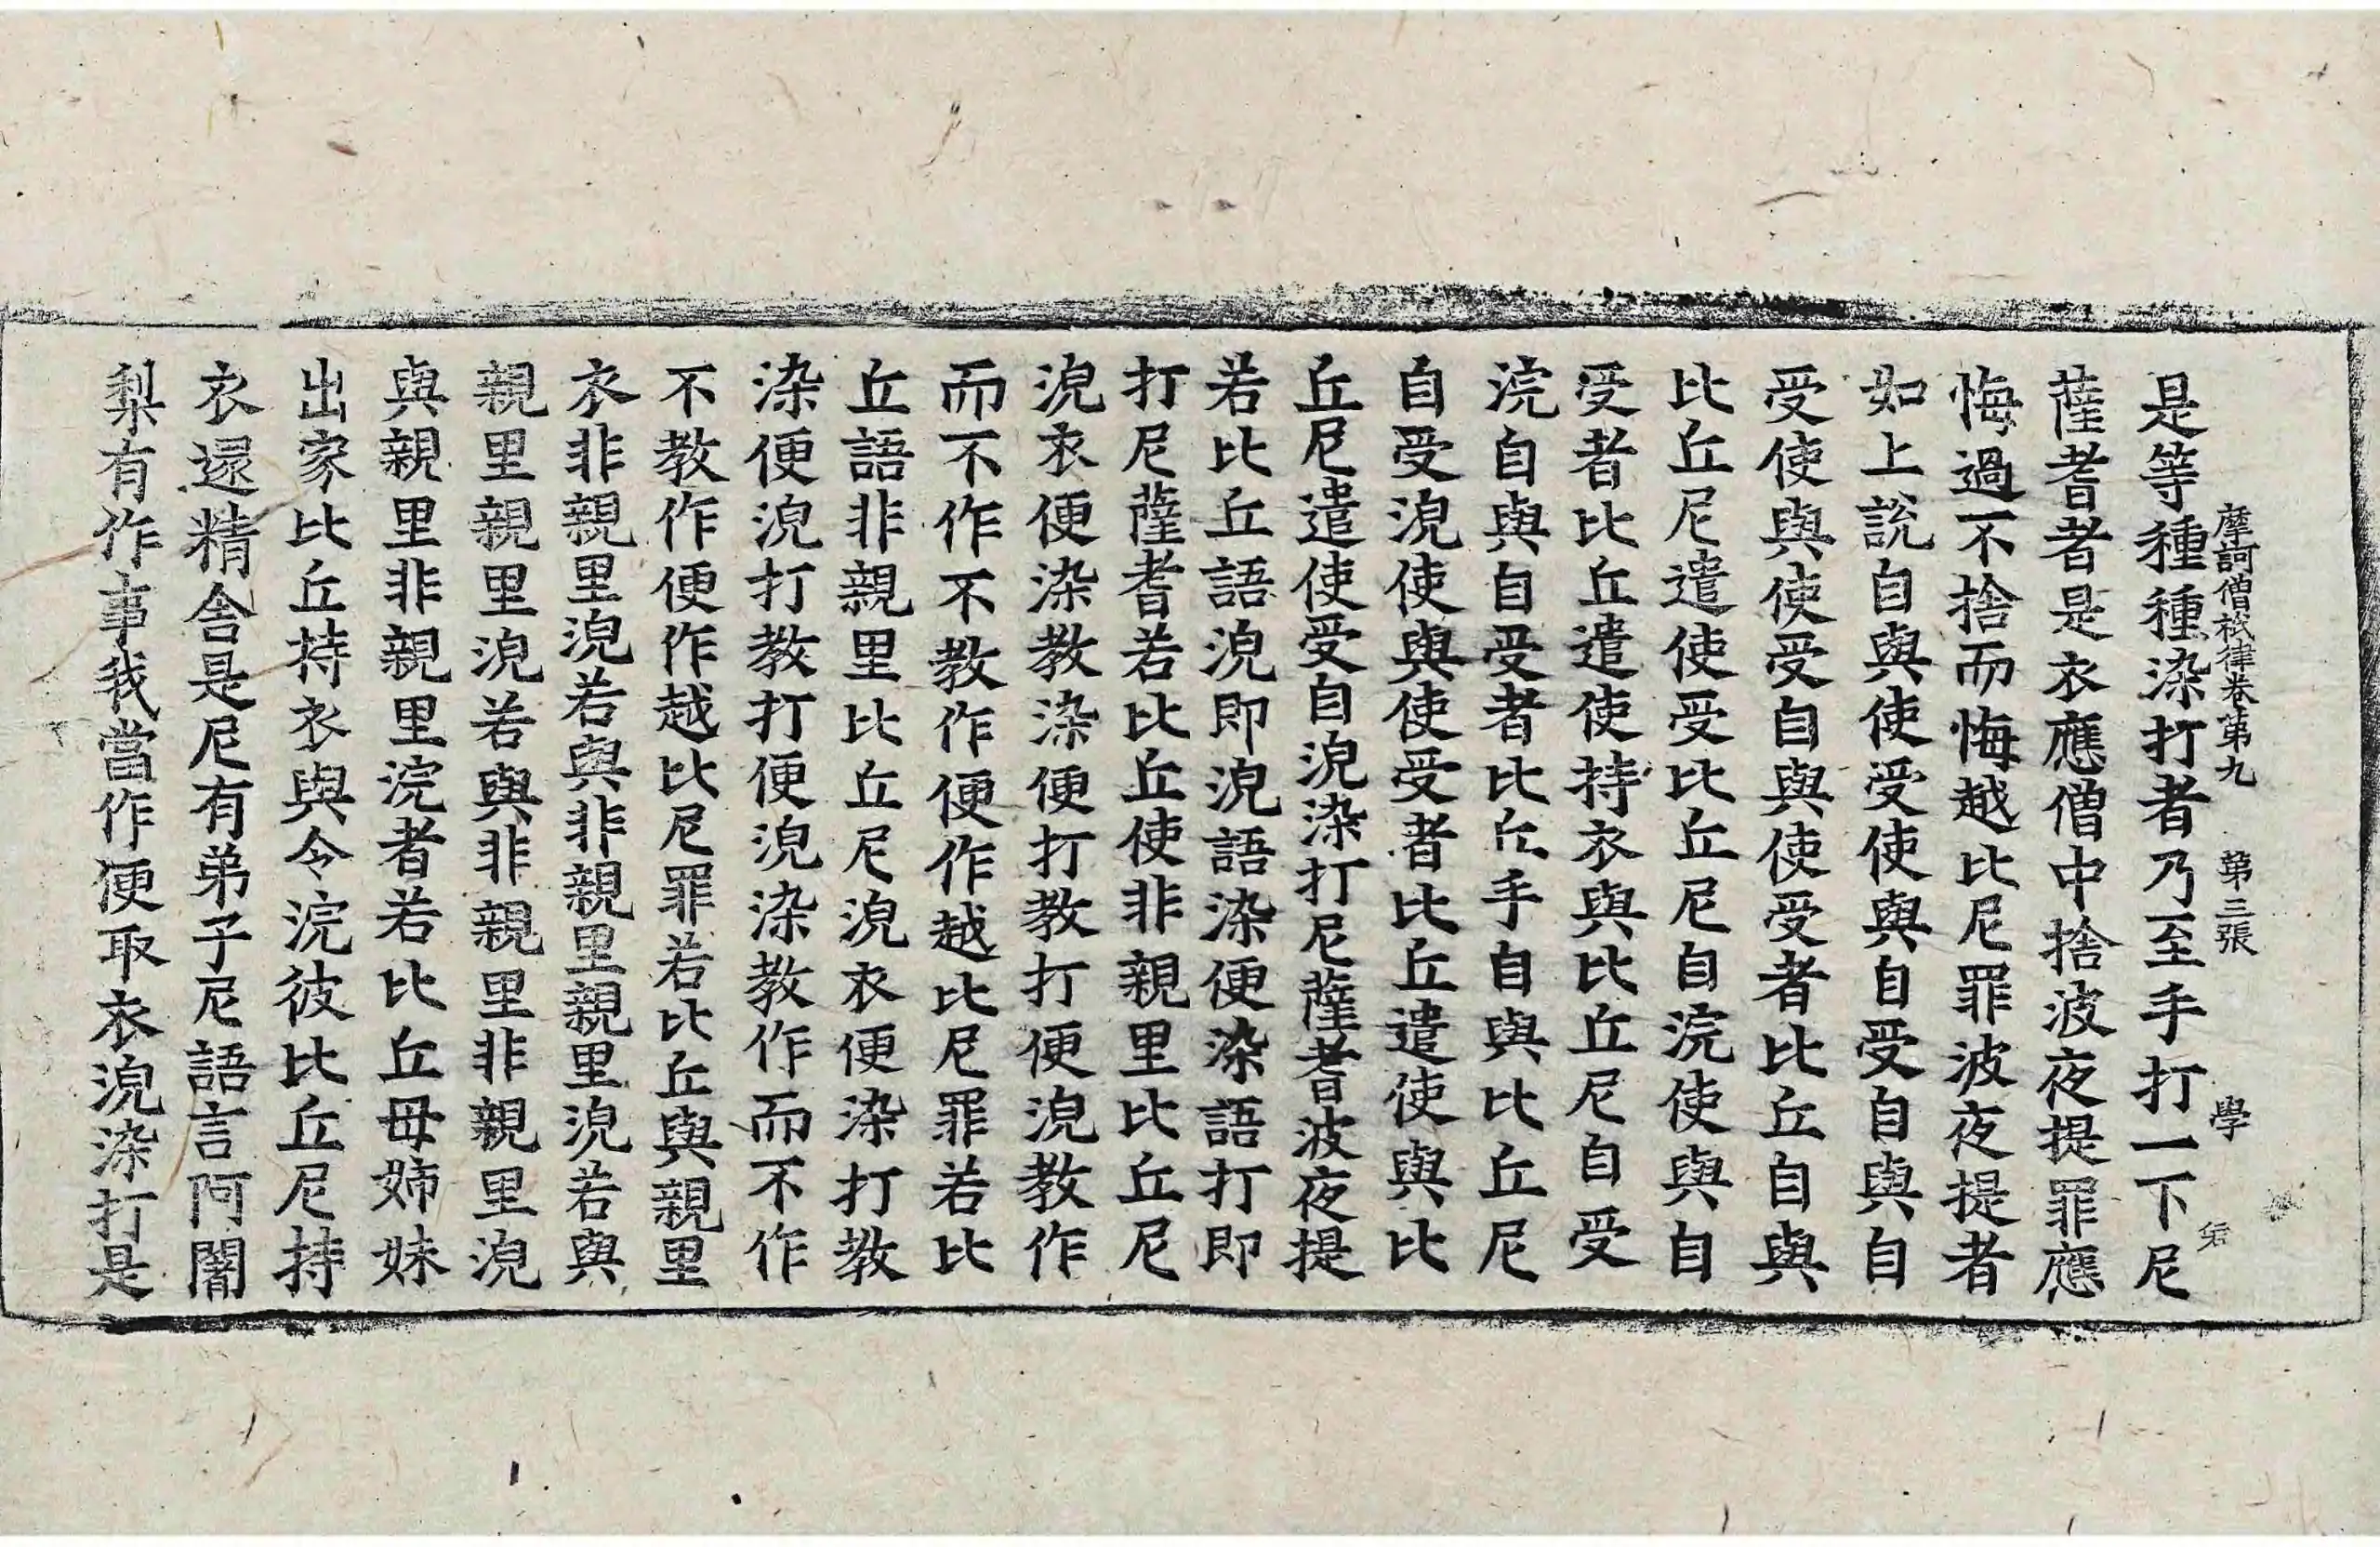 摩訶僧祇律卷第九 第三張 學
是等種種染打者乃至手打一下尼
薩耆者是衣應僧中捨波夜提罪應
悔過不捨而悔越比尼罪波夜提者
如上說自與使受使與自受自與自
受使與使受自與使受者比丘自與
比丘尼遣使受比丘尼自浣使與自
受者比丘遣使持衣與比丘尼自受
浣自與自受者比丘手自與比丘尼
自受浼使與使受者比丘遣使與比
丘尼遣使受自浼染打尼薩耆波夜提
若比丘語浼即浼語染便染語打即
打尼薩耆若比丘使非親里比丘尼
浼衣便染教染便打教打便浼教作
而不作不教作便作越比尼罪若比
丘語非親里比丘尼浼衣便染打教
染便浼打教打便浼染教作而不作
不教作便作越比尼罪若比丘與親里
衣非親里浼若與非親里親里浼若與
親里親里浼若與非親里非親里浼
與親里非親里浣者若比丘母姊妹
出家比丘持衣與令浣彼比丘尼持
衣還精舍是尼有弟子尼語言阿闍
梨有作事我當作便取衣浼染打是